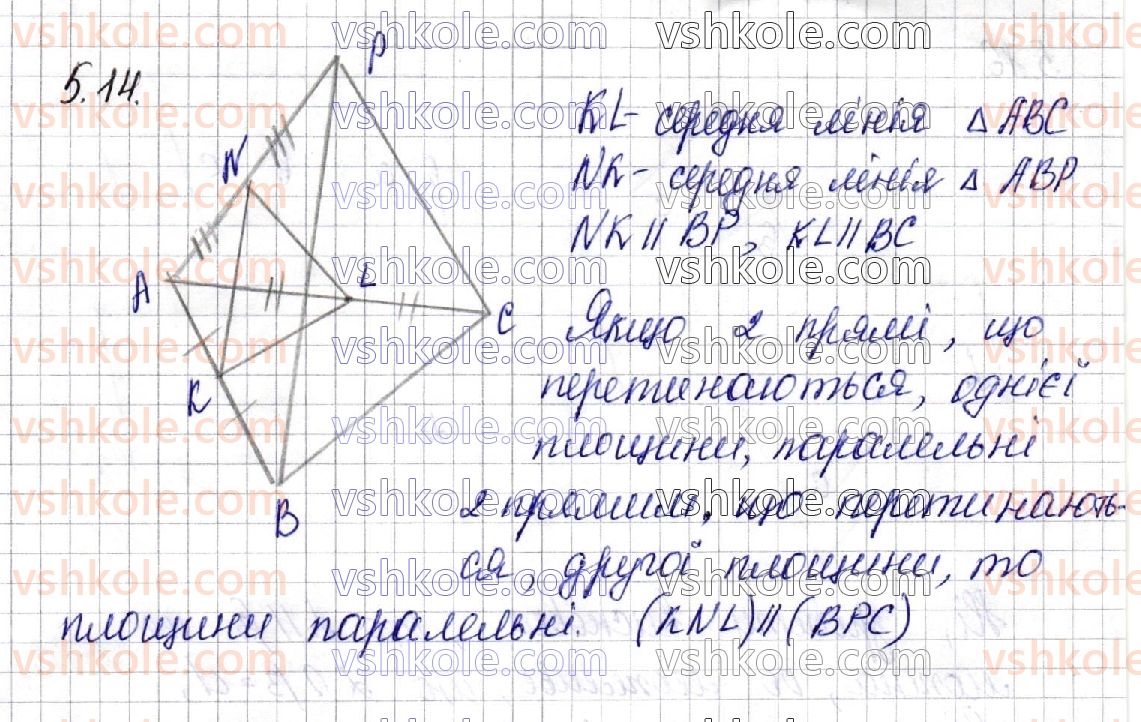 5.14.
P
N
A
L
C
K
B
KL - середня лінія △ ABC
NK - середня лінія △ ABP
NK || BP, KL || BC
Якщо 2 прямі, що
перетинаються, однієї
площини, паралельні
2 прямим, що перетинають-
ся, другої площини, то
площини паралельні. (KNL) || (BPC)
vshkole.com